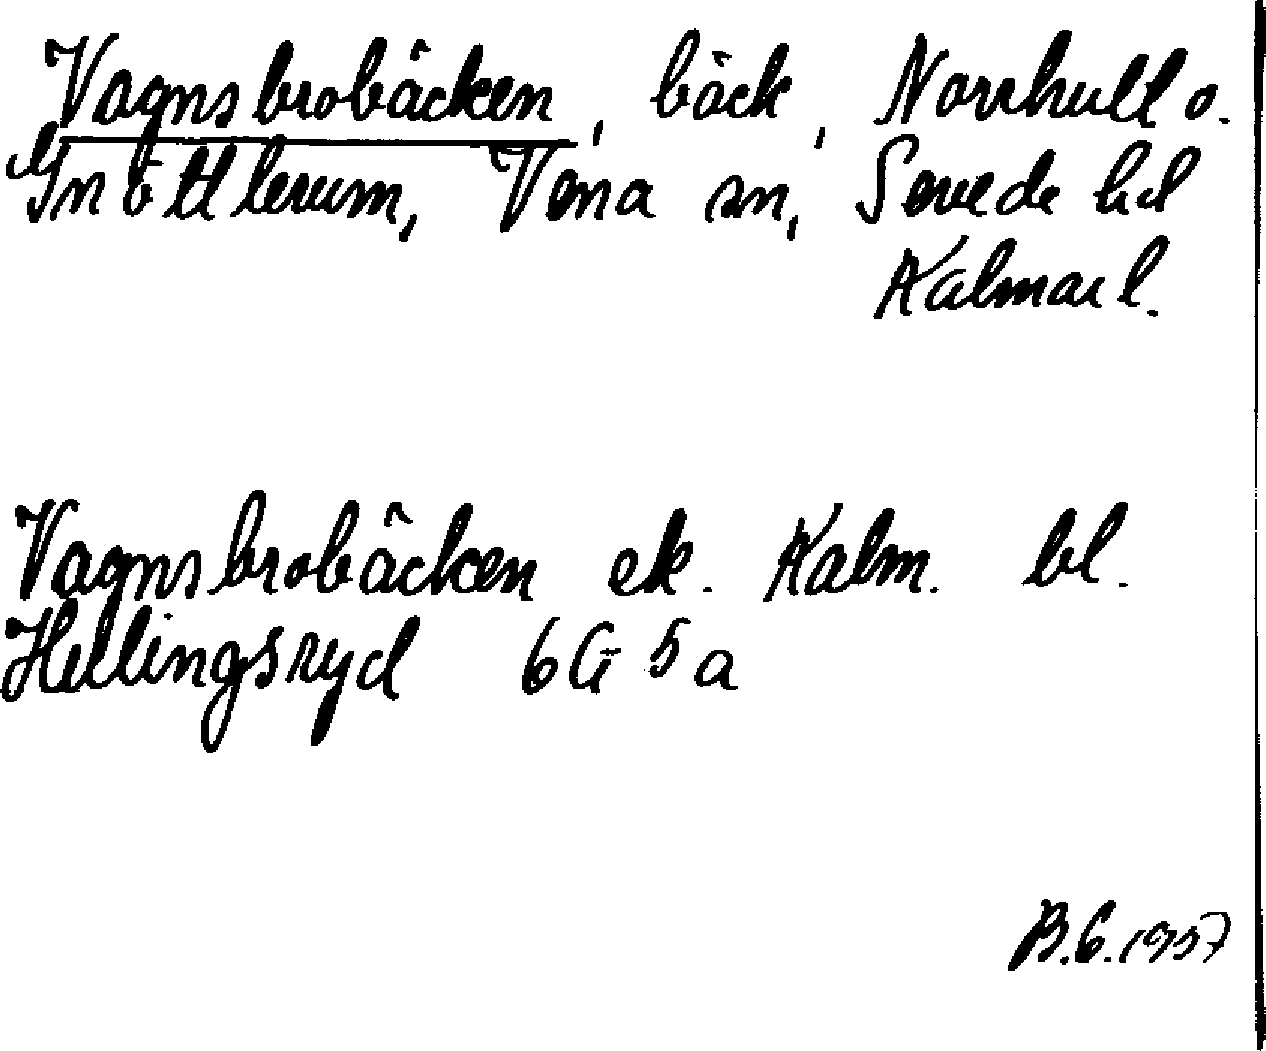 Vagnsbrobäcken, bäck, Norrhult o.
Gnöttlerum, Vena sn, Sevede hd
Kalmar l.
Vagnsbrobäcken ek. Kalm. bl.
Hellingsryd 6G 5a
B.G. 1957